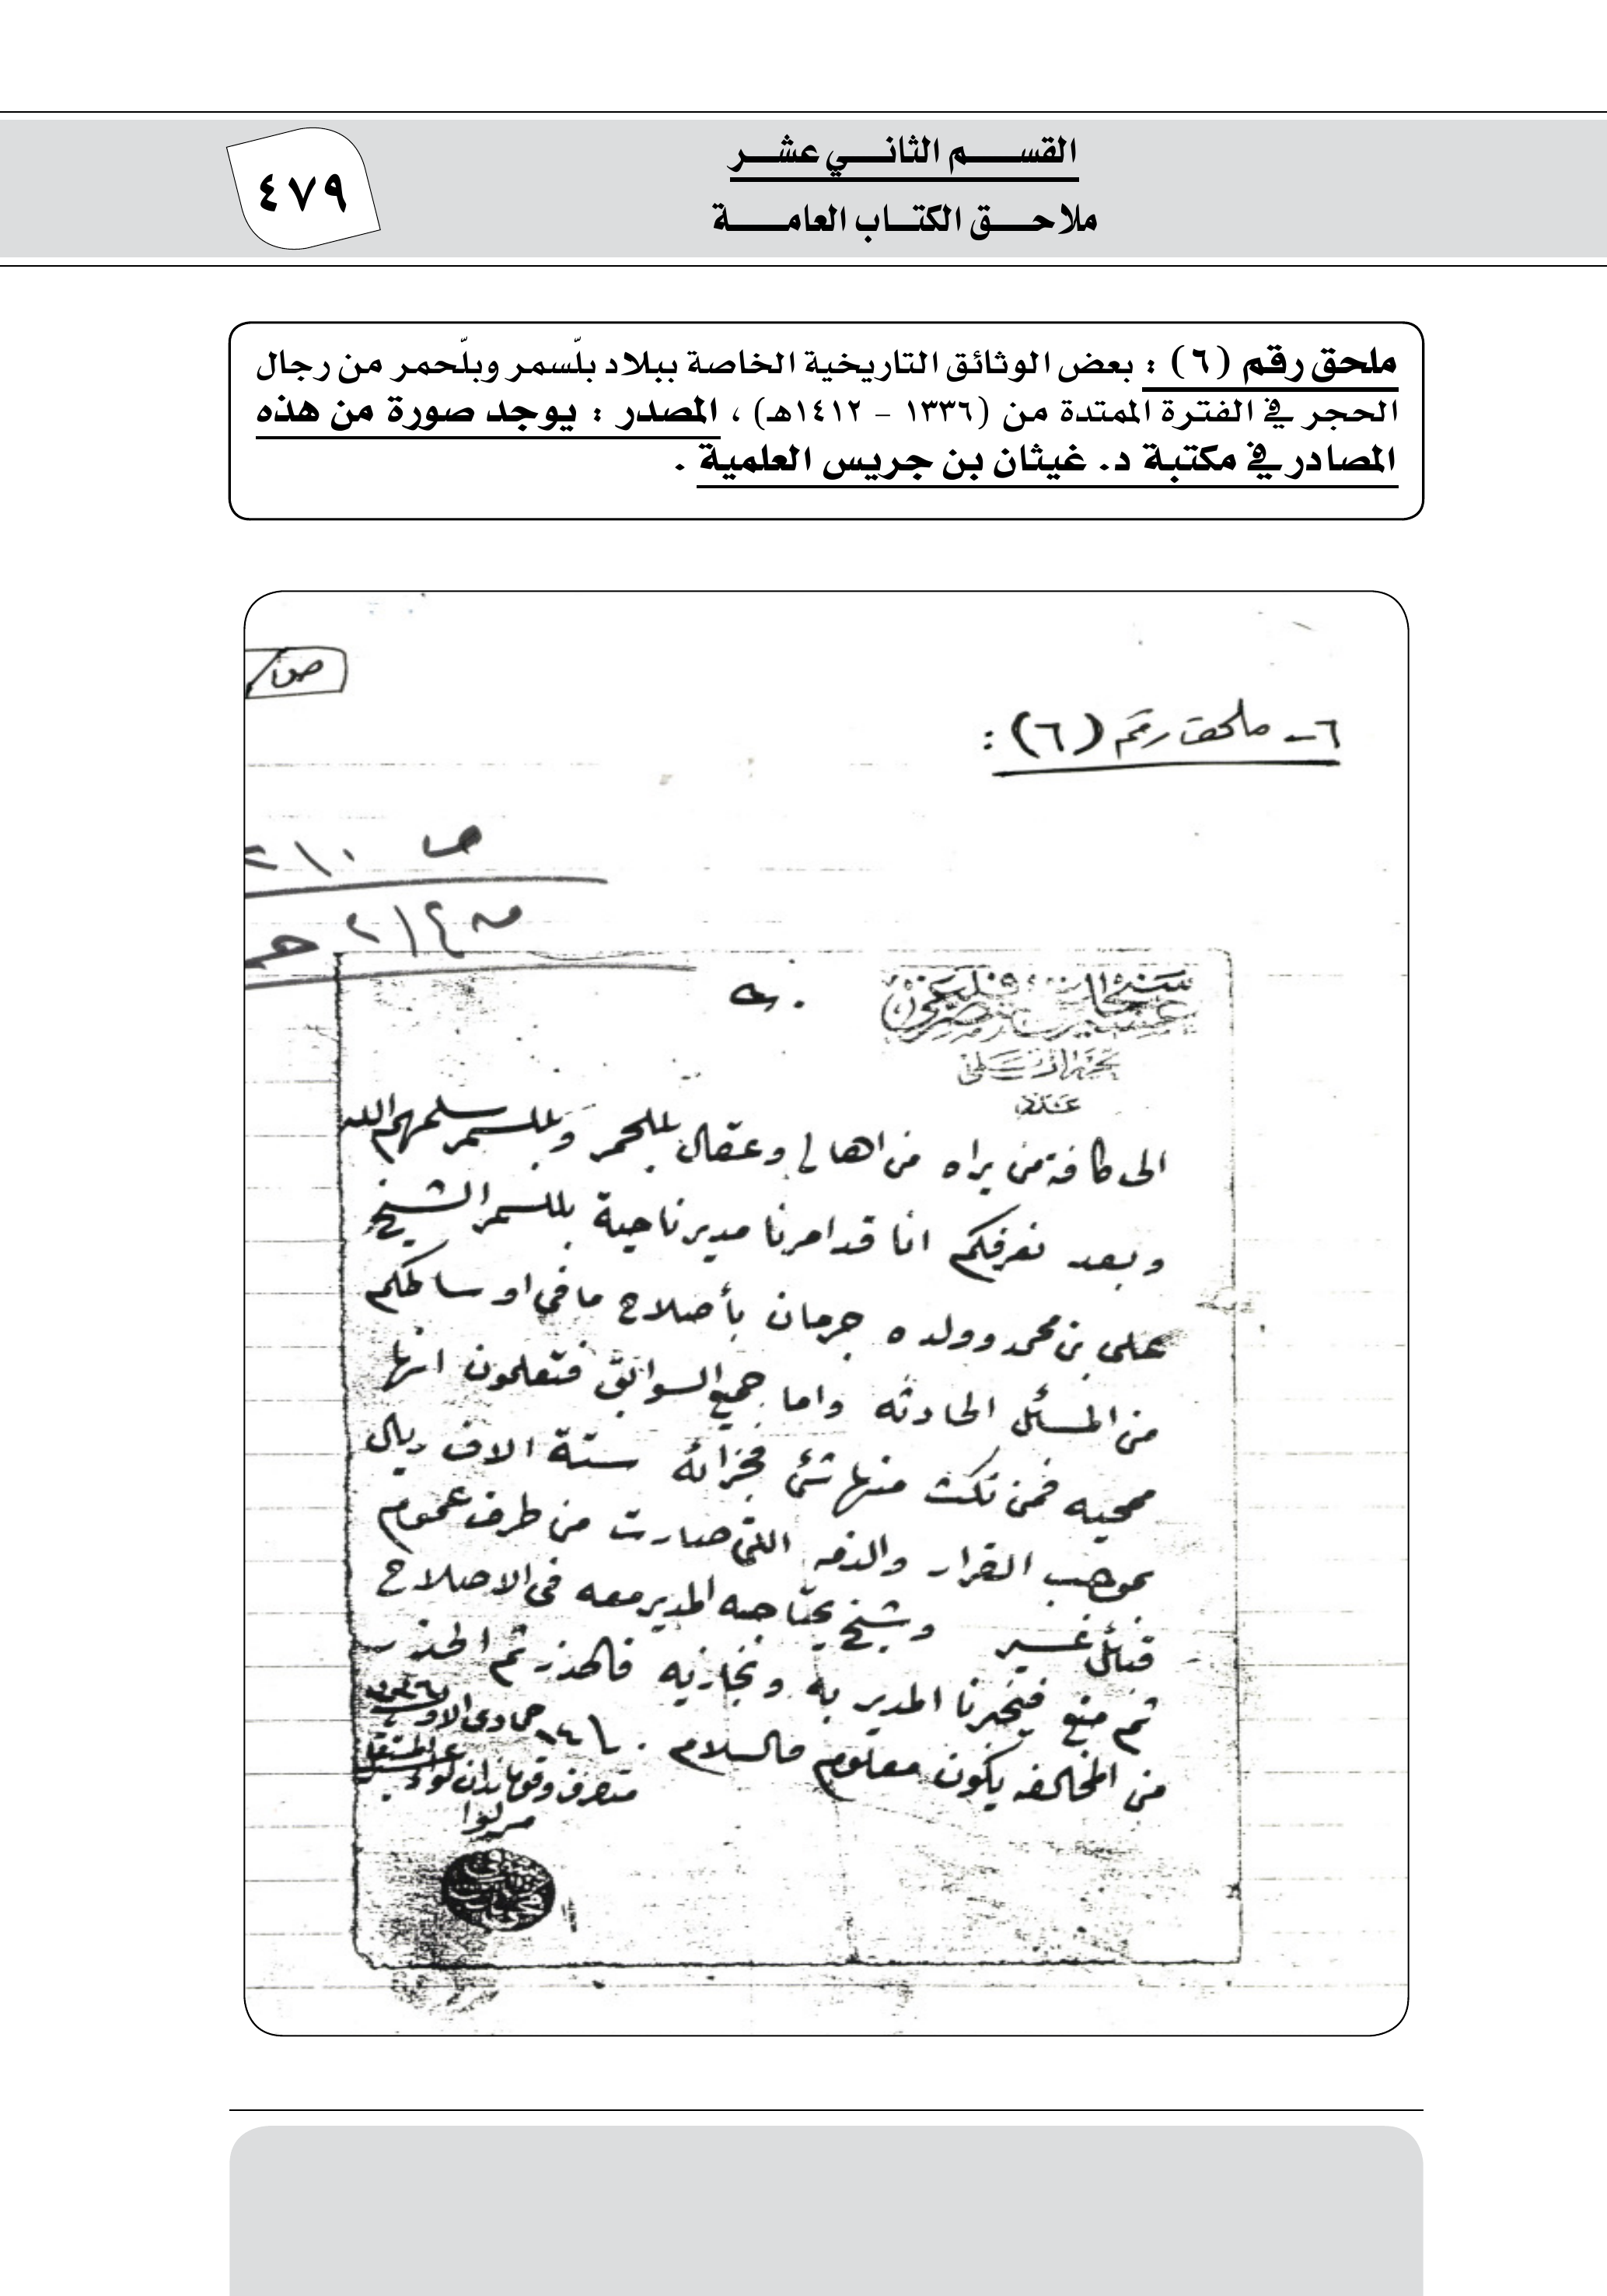 القسم الثاني عشر
ملاحق الكتاب العامة
٤٧٩
ملحق رقم (٦) : بعض الوثائق التاريخية الخاصة ببلاد بلّسمر وبلّحمر من رجال
الحجر في الفترة الممتدة من (١٣٣٦ - ١٤١٢هـ) ، المصدر : يوجد صورة من هذه
المصادر في مكتبة د. غيثان بن جريس العلمية .
ص/
٦- ملحق رقم (٦) :
الى كافة من يراه من اهالي وعقال بللحمر وبللسمر سلمهم الله
وبعد نعرفكم انا قد امرنا مدير ناحية بللسمر الشيخ
على بن محمد وولده جرمان بأصلاح ما في اوساطكم
من المسئل الحادثه واما جميع السوابق فتعلمون انها
ممحيه فمن نكث منها شئ فجزائه ستة الاف ريال
بموجب القرار والذمه اللتي صارت من طرف عموم
قبائل عسير وشيخ يحتاجه المدير معه في الاصلاح
ثم منع فيخبرنا المدير به ونجازيه فالحذر ثم الحذر
من المخالفه يكون معلوم والسلام . جمادى الاول
متصرف وقوماندان